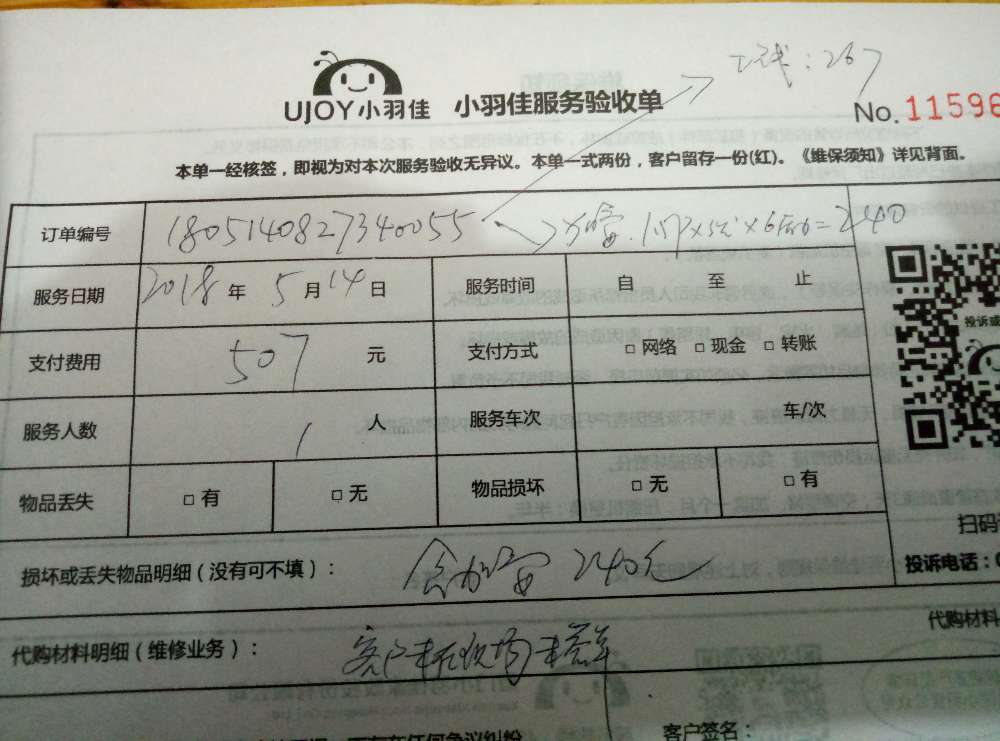 工钱：267
UJOY小羽佳 小羽佳服务验收单
No. 11596
本单一经核签，即视为对本次服务验收无异议。本单一式两份，客户留存一份(红)。《维保须知》详见背面。
订单编号 1805140827340055 =240
服务日期 2018 年 5 月 14 日 服务时间 自 至 止
投诉或
支付费用 507 元 支付方式 □ 网络 □ 现金 □ 转账
服务人数 1 人 服务车次 车/次
物品丢失 □ 有 □ 无 物品损坏 □ 无 □ 有
扫码
损坏或丢失物品明细（没有可不填）： 含加 240元
投诉电话：
代购材料明细（维修业务）： 客户未在现场未签单
代购材料
客户签名：